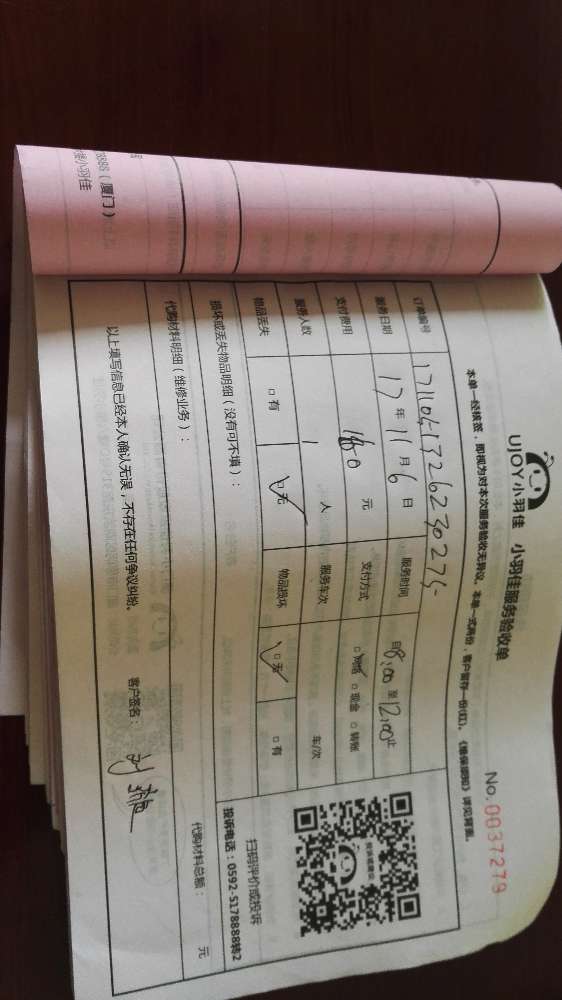 UJOY小羽佳 小羽佳服务验收单
No.0037279
本单一经核签，即视为对本次服务验收无异议。本单一式两份，客户留存一份(红)。《维保须知》详见背面。
订单编号 1711051326230275
服务日期 17年 11月 6日 服务时间 自8:00至12:00止
支付费用 160元 支付方式 □网络 □现金 □转账
服务人数 1人 服务车次 车/次
物品丢失 □有 □无 物品损坏 □无 □有
投诉或建议
扫码评价或投诉
投诉电话：0592-5178888转2
损坏或丢失物品明细（没有可不填）：
代购材料明细（维修业务）： 代购材料总额： 元
以上填写信息已经本人确认无误，不存在任何争议纠纷。 客户签名：
8888（厦门）
小羽佳